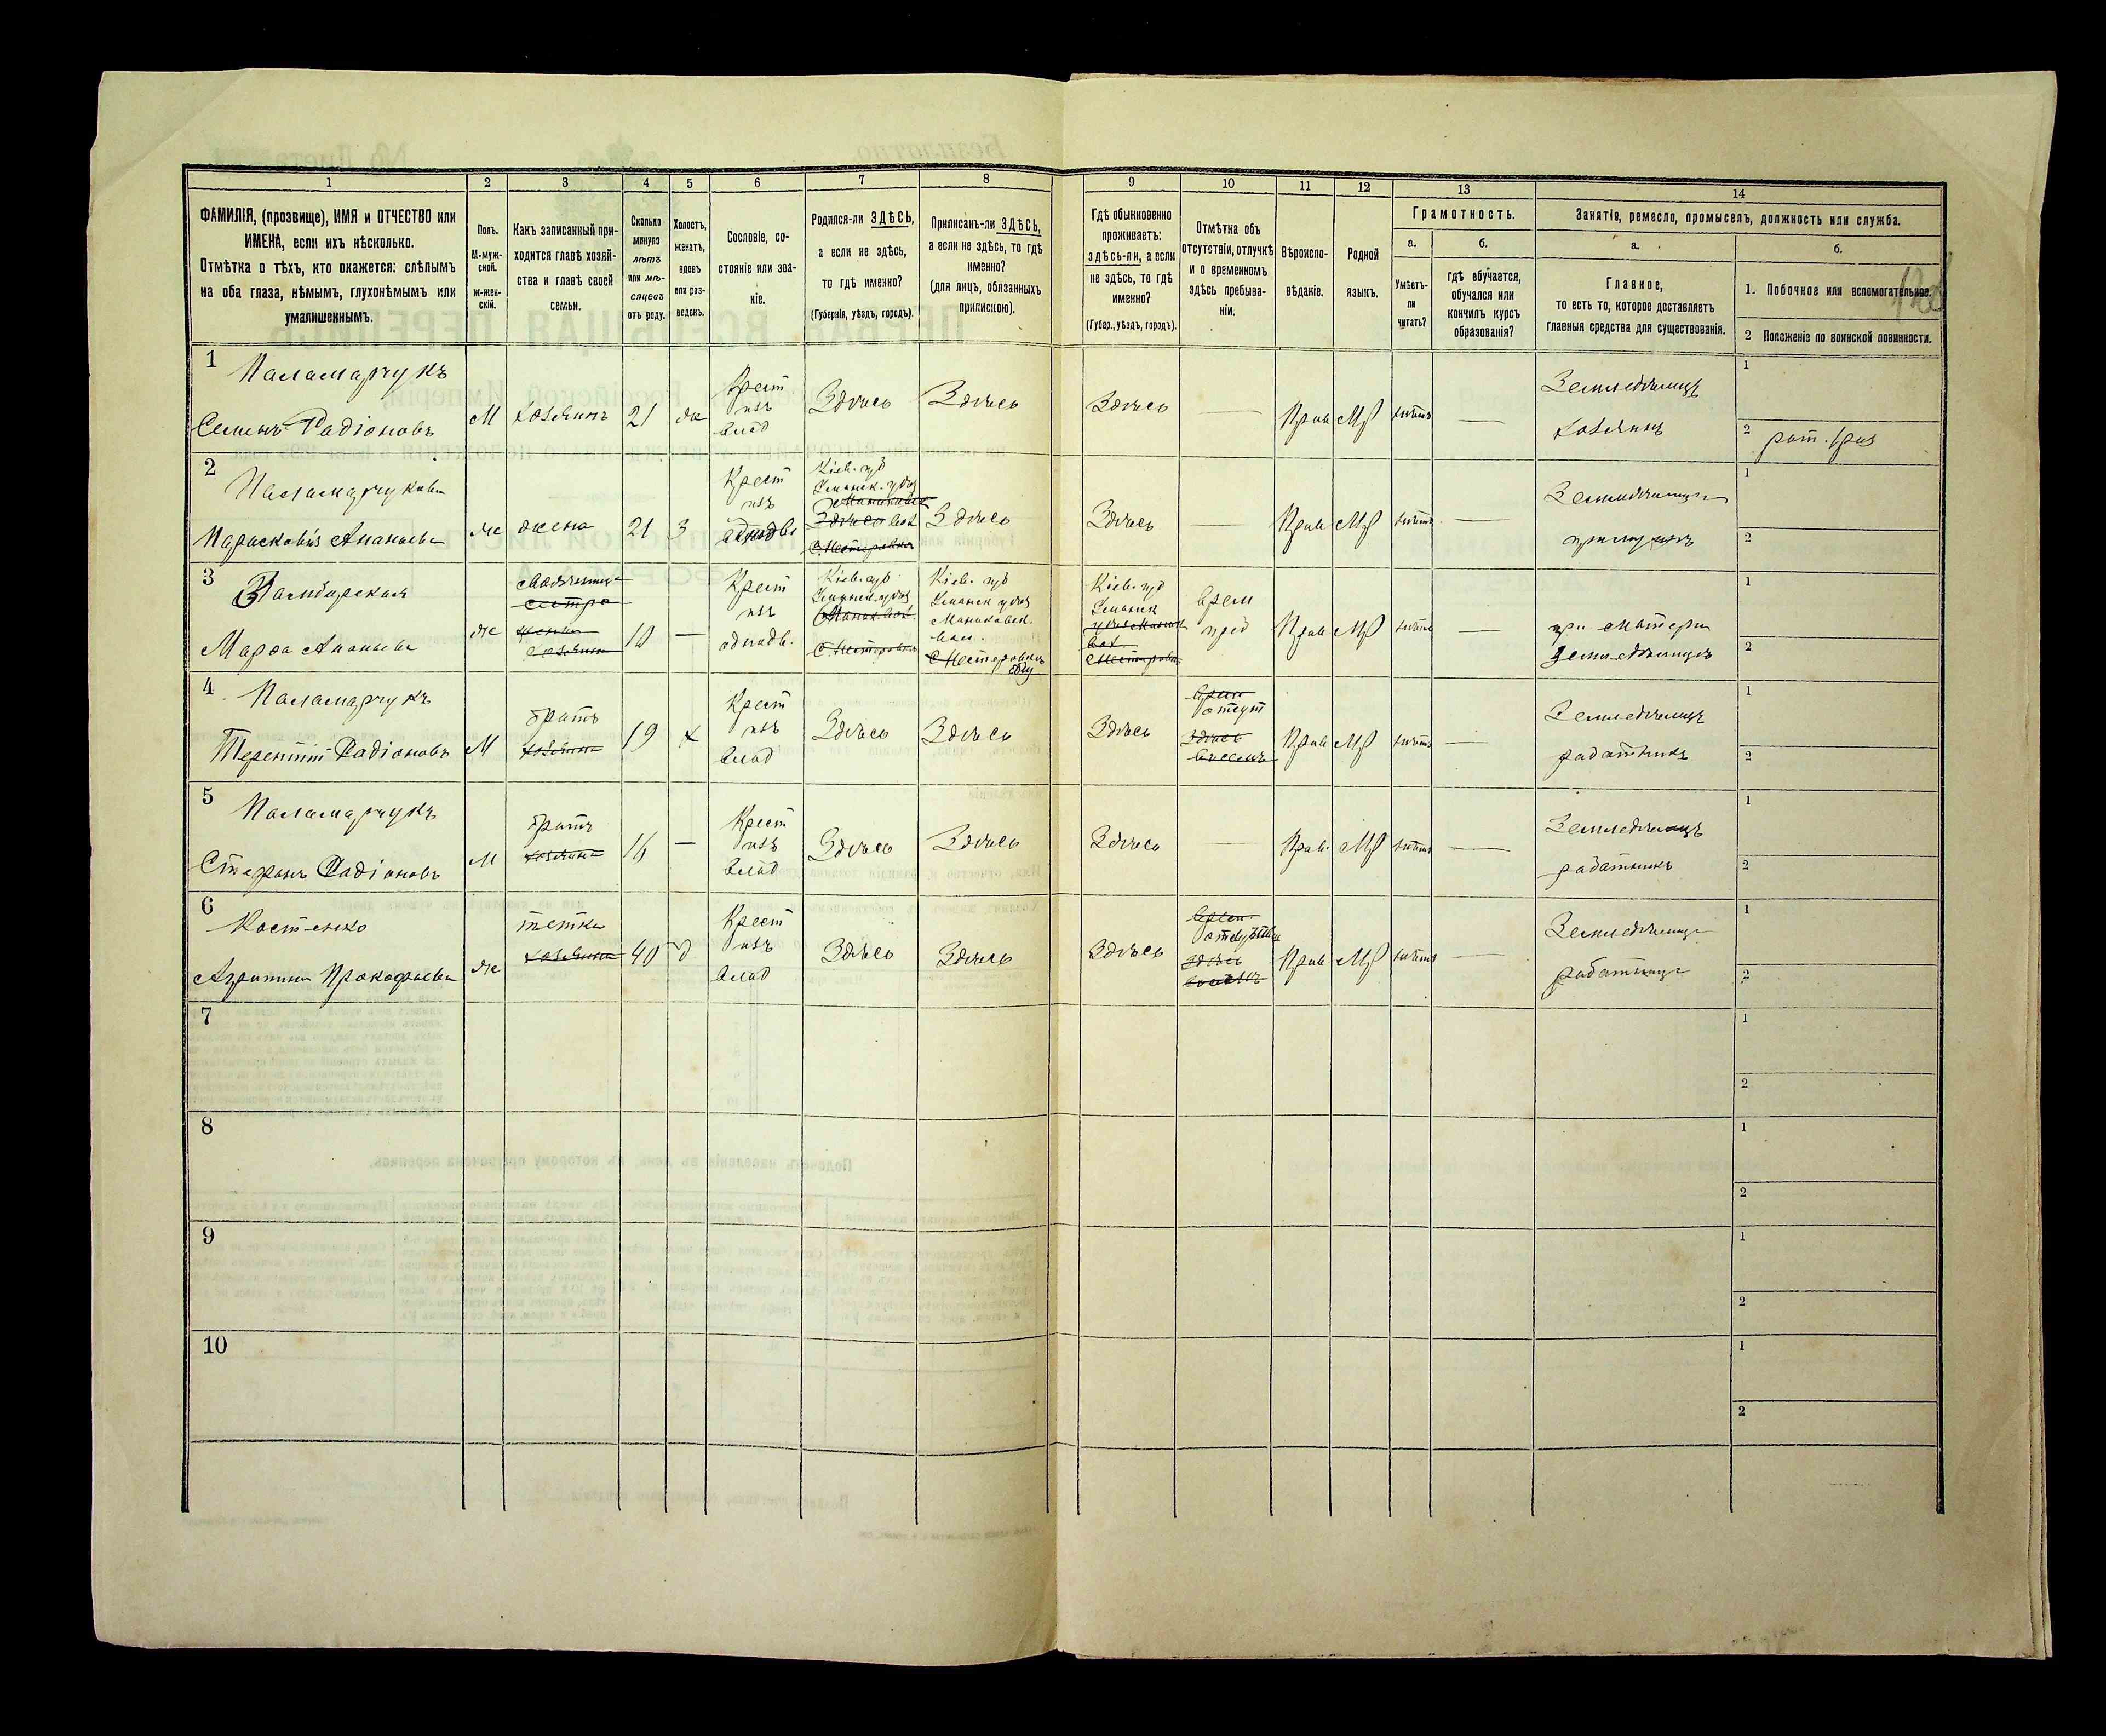 1
2
3
4
5
6
7
8
9
10
11
12
13
14
ФАМИЛІЯ, (прозвище), ИМЯ и ОТЧЕСТВО или
ИМЕНА, если ихъ нѣсколько.
Отмѣтка о тѣхъ, кто окажется: слѣпымъ
на оба глаза, нѣмымъ, глухонѣмымъ или
умалишеннымъ.
Полъ.
М-муж-
ской.
ж-жен-
скій.
Какъ записанный при-
ходится главѣ хозяй-
ства и главѣ своей
семьи.
Сколько
минуло
лѣтъ
или мѣ-
сяцевъ
отъ роду.
Холостъ,
женатъ,
вдовъ
или раз-
веденъ.
Сословіе, со-
стояніе или зва-
ніе.
Родился-ли ЗДѢСЬ,
а если не здѣсь,
то гдѣ именно?
(Губернія, уѣздъ, городъ).
Приписанъ-ли ЗДѢСЬ,
а если не здѣсь, то гдѣ
именно?
(для лицъ, обязанныхъ
припискою).
Гдѣ обыкновенно
проживаетъ:
здѣсь-ли, а если
не здѣсь, то гдѣ
именно?
(Губер., уѣздъ, городъ).
Отмѣтка объ
отсутствіи, отлучкѣ
и о временномъ
здѣсь пребыва-
ніи.
Вѣроиспо-
вѣданіе.
Родной
языкъ.
Грамотность.
а.
Умѣетъ-
ли
читать?
б.
гдѣ обучается,
обучался или
кончилъ курсъ
образованія?
Занятіе, ремесло, промыселъ, должность или служба.
а.
Главное,
то есть то, которое доставляетъ
главныя средства для существованія.
б.
1. Побочное или вспомогательное.
2 Положеніе по воинской повинности.
1
Паламарчукъ
Семенъ Радіоновъ
М
хозяинъ
21
ж
Крест
изъ
влад
Здѣсь
Здѣсь
Здѣсь
Прав
МР
нѣтъ
Земледѣлецъ
хозяинъ
1
2
2
Паламарчукова
Парасковія Ананьева
ж
жена
21
3
Крест
изъ
Кіев. губ
Уманск. уѣзд
Здѣсь
Здѣсь
Здѣсь
Прав
МР
нѣтъ
1
2
3
Марфа Ананьева
ж
сестра
10
Крест
изъ
однодв.
Кіев. губ
Уманск. уѣзд
С. Нестеровка
Кіев. губ
Уманск уѣзд
Маньковск.
вол.
С Нестеровка
Кіев. губ
Уманск
врем
преб
Прав
МР
нѣтъ
при матери
1
2
4
Паламарчукъ
Терентій Радіоновъ
М
братъ
хозяина
19
х
Крест
изъ
влад
Здѣсь
Здѣсь
Здѣсь
врем
отсут
Прав
МР
нѣтъ
Земледѣлецъ
работникъ
1
2
5
Паламарчукъ
Стефанъ Радіоновъ
М
братъ
хозяина
16
Крест
изъ
влад
Здѣсь
Здѣсь
Здѣсь
Прав.
МР
нѣтъ
Земледѣлецъ
работникъ
1
2
6
Костенко
Агрипина Прокофьева
ж
тетка
хозяина
40
в
Крест
изъ
влад
Здѣсь
Здѣсь
Здѣсь
Прав
МР
нѣтъ
работница
1
2
7
1
2
8
1
2
9
1
2
10
1
2